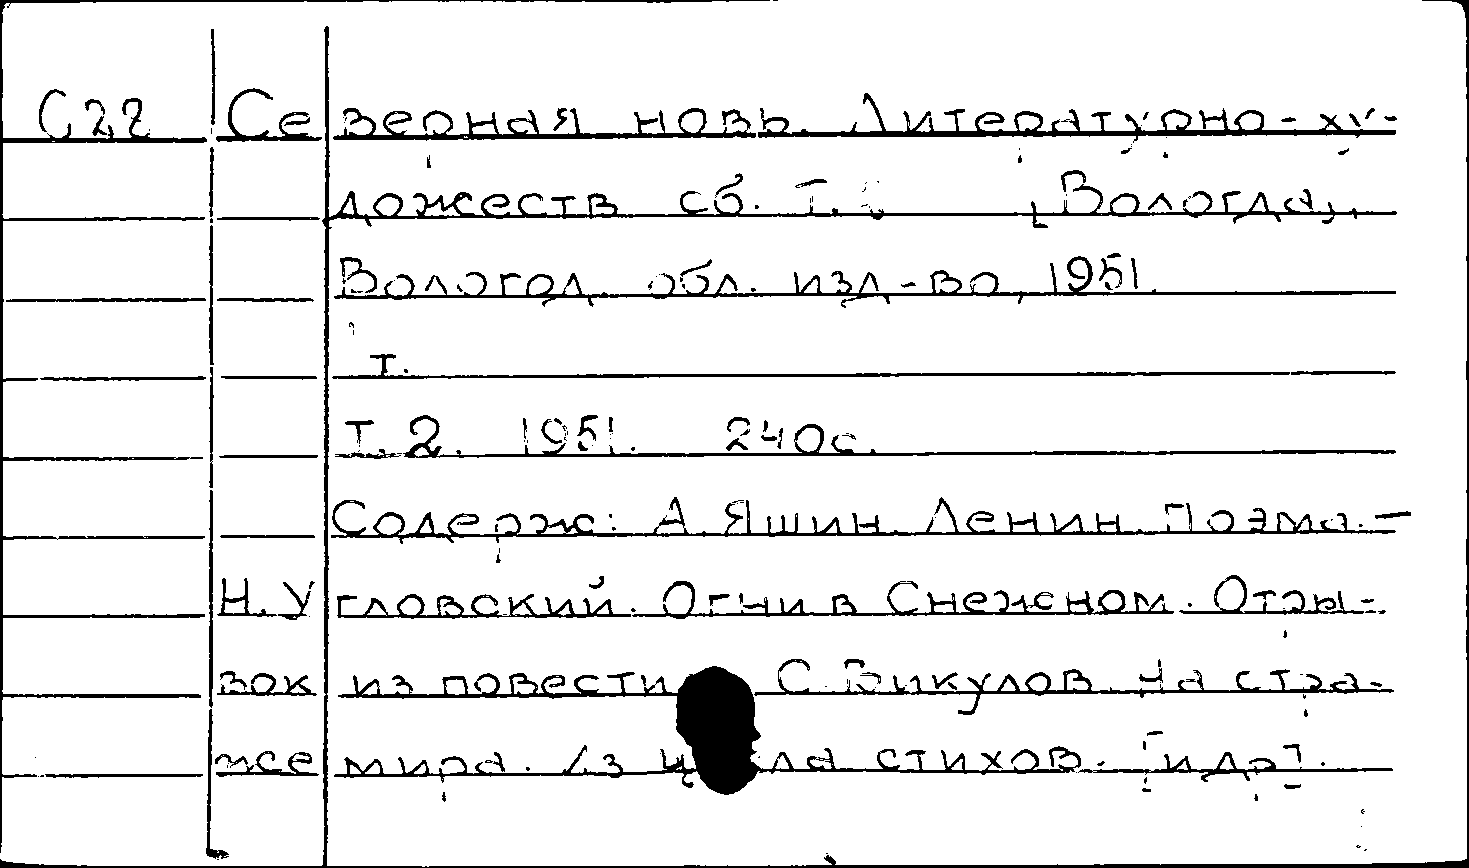 С22 Северная новь. Литературно-ху-
дожеств сб. Т. [Вологда],
Вологод. обл. изд-во, 1951.
т.
Т. 2. 1951. 240с.
Содерж: А. Яшин. Ленин. Поэма. –
Н. Угловский. Огни в Снежном. Отры-
вок из повести С. Викулов. На стра-
же мира. Из цикла стихов. [и др].